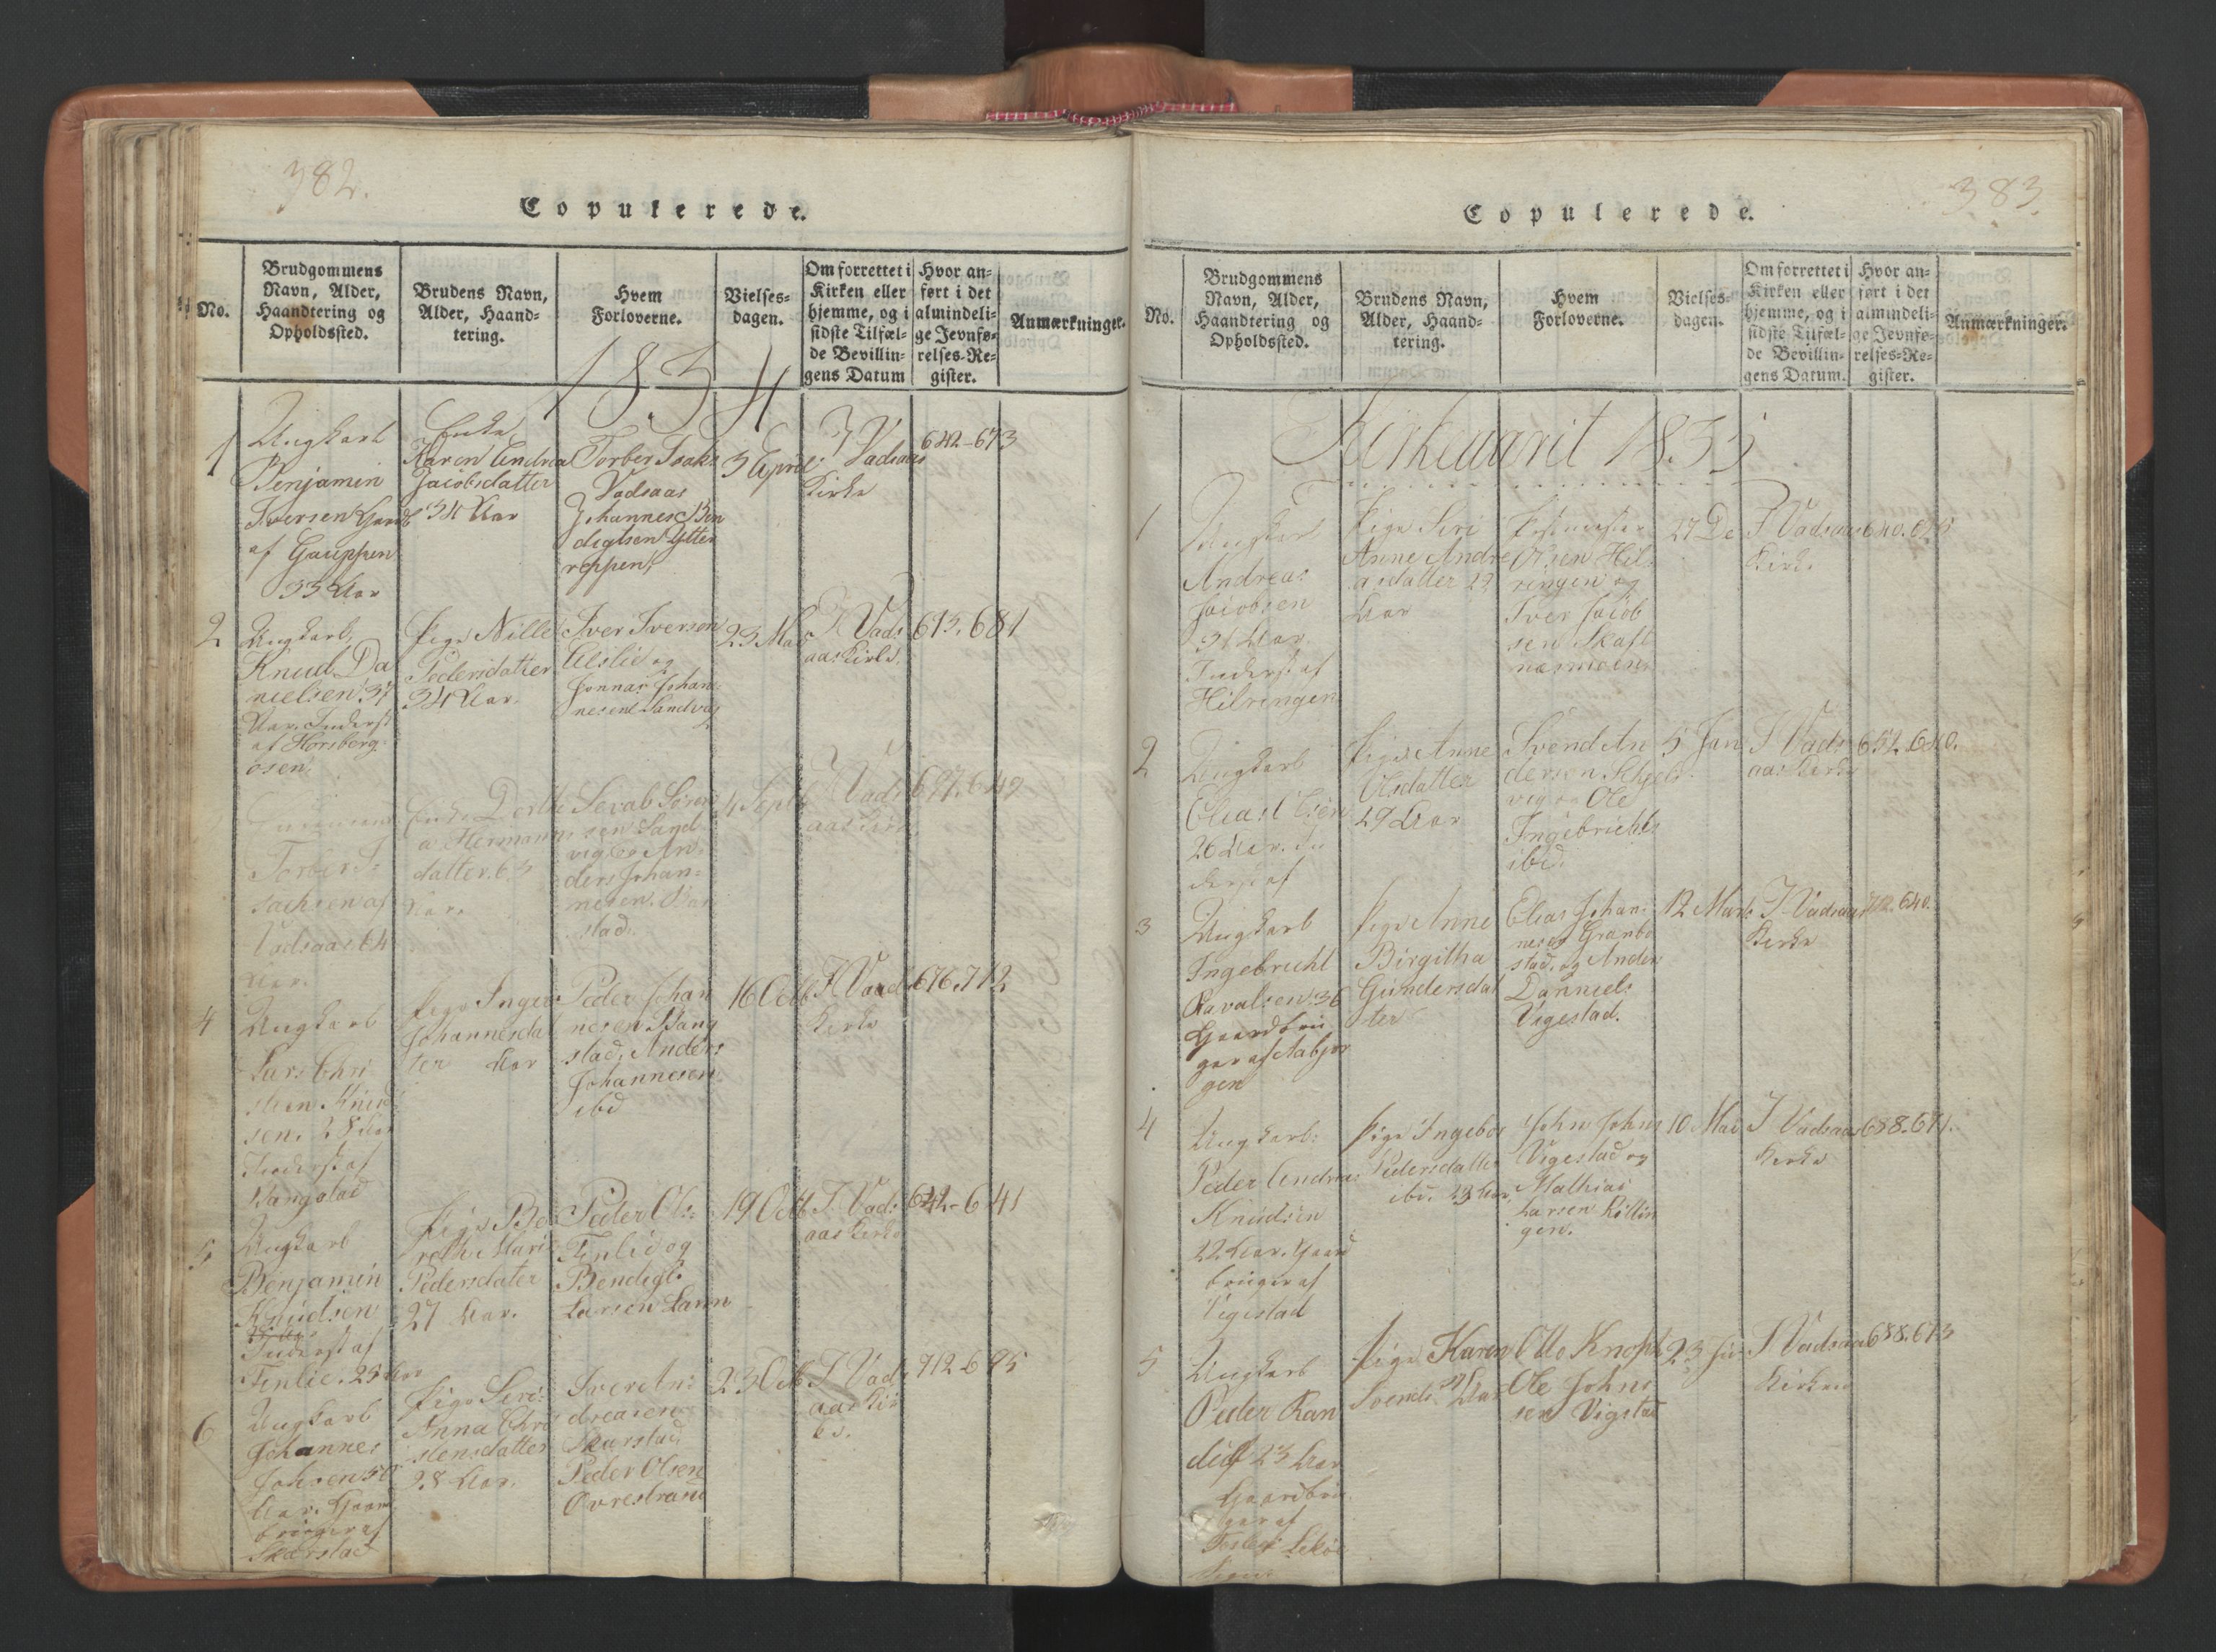 382.
Copulerede.
No.
Brudgommens
Navn, Alder,
Haandtering og
Opholdssted.
Brudens Navn,
Alder, Haand-
tering.
Hvem
Forloverne.
Vielses-
dagen.
Om forrettet i
Kirken eller
hjemme, og i
sidste Tilfæl-
de Bevillin-
gens Datum
Hvor an-
ført i det
almindeli-
ge Jevnfø-
relses-Re-
gister.
Anmærkninger.
1834
1
Ungkarl
Benjamin
Iversen
af Gauppen
33 Aar
Enke
Karen Andrea
Jacobsdatter
34 Aar
Torber Isaks:
Vadsaas
Johannes Ben
digtsen Ytter
reppen
3 April
I Vadsaas
Kirke
642-673
2
Ungkarl
Knud Da
nielsen 37
Aar. Inderst
af Horsberg
osen
Pige Nille
Pedersdatter
34 Aar.
Iver Iversen
Aislie og
Jonnas Johan
nesen Sandvig
23 Mai
I Vads
aas Kirke.
613.681
Torber I:
sachsen af
Vadsaas 64
Aar.
Enke Dorth
a Hermanns
datter. 63
Aar.
Serab Søren
sen Sand
vig og An
ders Johan
nesen. Ban
stad.
4 Septb
I Vads
aas Kirke
697.649
4
Ungkarl
Lars Chri
stian Knud
sen. 28 Aar
Inderst af
Bangstad
Pige Inger
Johannesdat
ter Aar
Peder Johan
nesen Bang
stad, Anders
Johannesen
ibd
16 Octb
I Vads
Kirke
676.712
5
Ungkarl
Benjamin
Knudsen
Inderst af
Finlie. 25 Aar
Pige Be
reth Marie
Pedersdater
27 Aar.
Peder Ols:
Finlie og
Bendigt:
Larsen Lann
19 Octb
I Vads
aas Kirke
642-641
6
Ungkarl
Johannes
Johsen 50
Aar. Gaard
bruger af
Skarstad
Pige Seri:
Anna Chri
stensdatter
28 Aar.
Iver An:
dreasen
Skarstad
Peder Olsen
Øvrestrand
23 Octb
I Vads
aas Kir
ke.
712-695
383.
Copulerede.
No.
Brudgommens
Navn, Alder,
Haandtering og
Opholdssted.
Brudens Navn,
Alder, Haand-
tering.
Hvem
Forloverne.
Vielses-
dagen.
Om forrettet i
Kirken eller
hjemme, og i
sidste Tilfæl-
de Bevillin-
gens Datum.
Hvor an-
ført i det
almindeli-
ge Jevnfø-
relses-Re-
gister.
Anmærkninger.
Kirkeaarit 1835
1
Ungkarl
Andreas
Jacobsen
31 Aar
Inderst af
Hilringen
Pige Seri
Anne Andre
asdatter 29
Aar
Olsen Hil
ringen og
Iver Jacob
sen Skaft
næsmoen
27 De
I Vadsaas
Kirke
640.
2
Ungkarl
Elias Olsen
26 Aar. In
derst af
Pige Anne
Olsdatter
29 Aar
Svend An
dersen Schjels
vig og Ole
Ingebrichts
ibd.
5 Jan
I Vads
aas Kirke
652.640.
3
Ungkarl
Ingebricht
Pavalsen 36
Gaardbru
ger af Aabjør
gen
Pige Anne
Birgitha
Gundersdat
ter
Elias Johan:
nesen Granbo
stad, og Anders
Danniels
Vigestad.
12 Marts
I Vadsaas
Kirke
712.640.
4
Ungkarl:
Peder Andrea:
Knudsen
22 Aar. Gaard
bruger af
Vigestad
Pige Ingebor
Pedersdatter
ibd. 23 Aar.
John Johns
Vigestad og
Mathias
Larsen Kollin
gen.
10 Mai
I Vadsaas
Kirke
688.671.
5
Ungkarl
Peder Ran
dulf 23 Aar
Gaardbru
ger af
Pige Karen
Svends: Aar
Otto Knoph
Ole Johns
sen Vigstad
23 Ju
I Vadsaas
Kirken
688.673